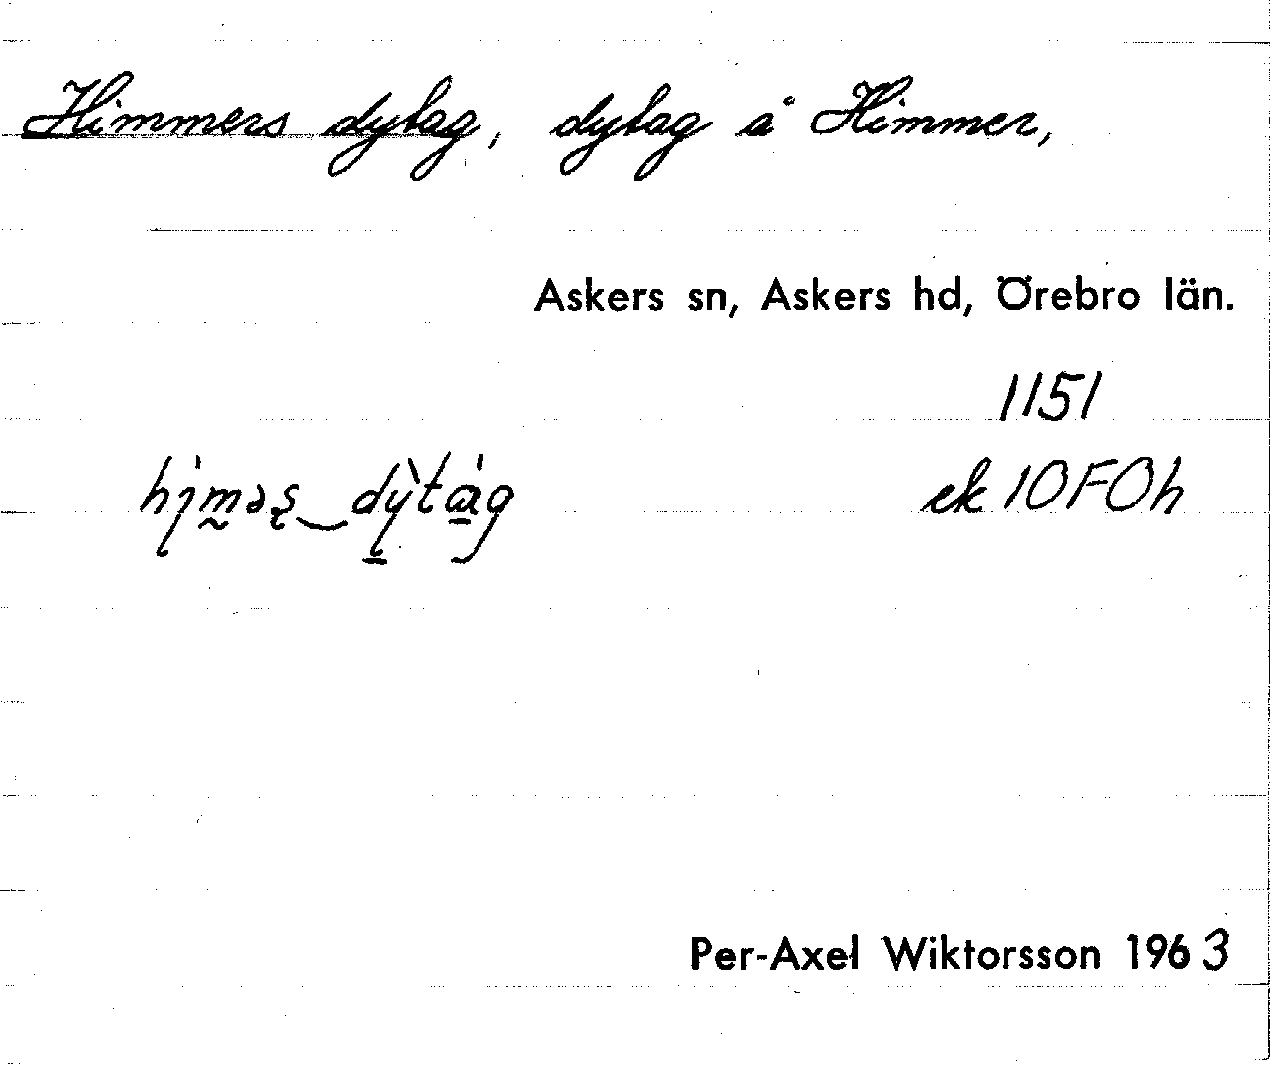 Himmers dytag, dytag å Himmer,
Askers sn, Askers hd, Örebro län.
1151
ek 10F0h
Per-Axel Wiktorsson 1963